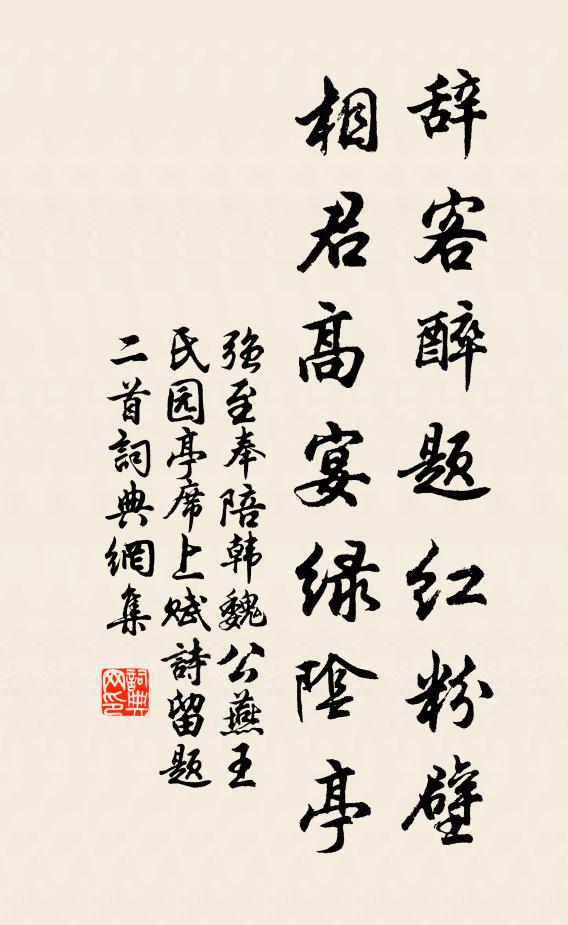 辞客醉题红粉壁
相君高宴绿阴亭
强至奉陪韩魏公燕王
民园亭席上赋詩留题
二首詞典網集
詞典网印